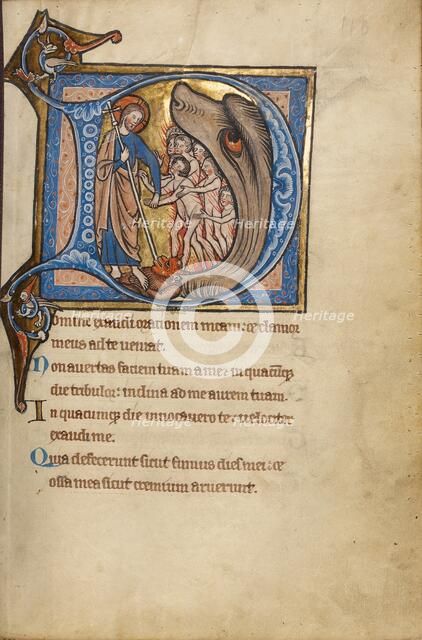 118
Domine exaudi orationem meam: & clamor
meus ad te veniat.
Non avertas faciem tuam a me: in quacũq̨
die tribulor: inclina ad me aurem tuam.
In quacumq̨ die invocavero te: velociter
exaudi me.
Quia defecerunt sicut fumus dies mei: &
ossa mea sicut cremium aruerunt.
Heritage
Heritage
Heritage
Heritage
Heritage
Heritage